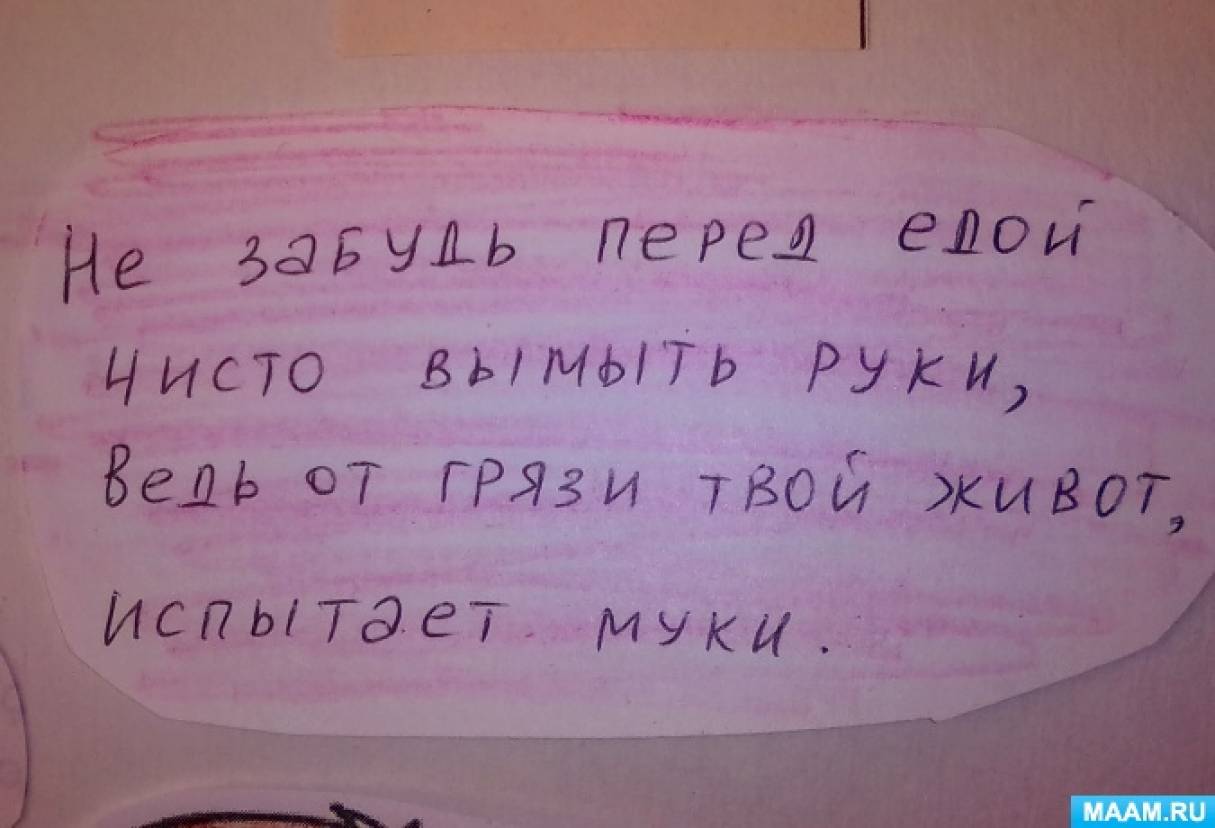 Не забудь перед едой
чисто вымыть руки,
Ведь от грязи твой живот,
испытает муки.
MAAM.RU